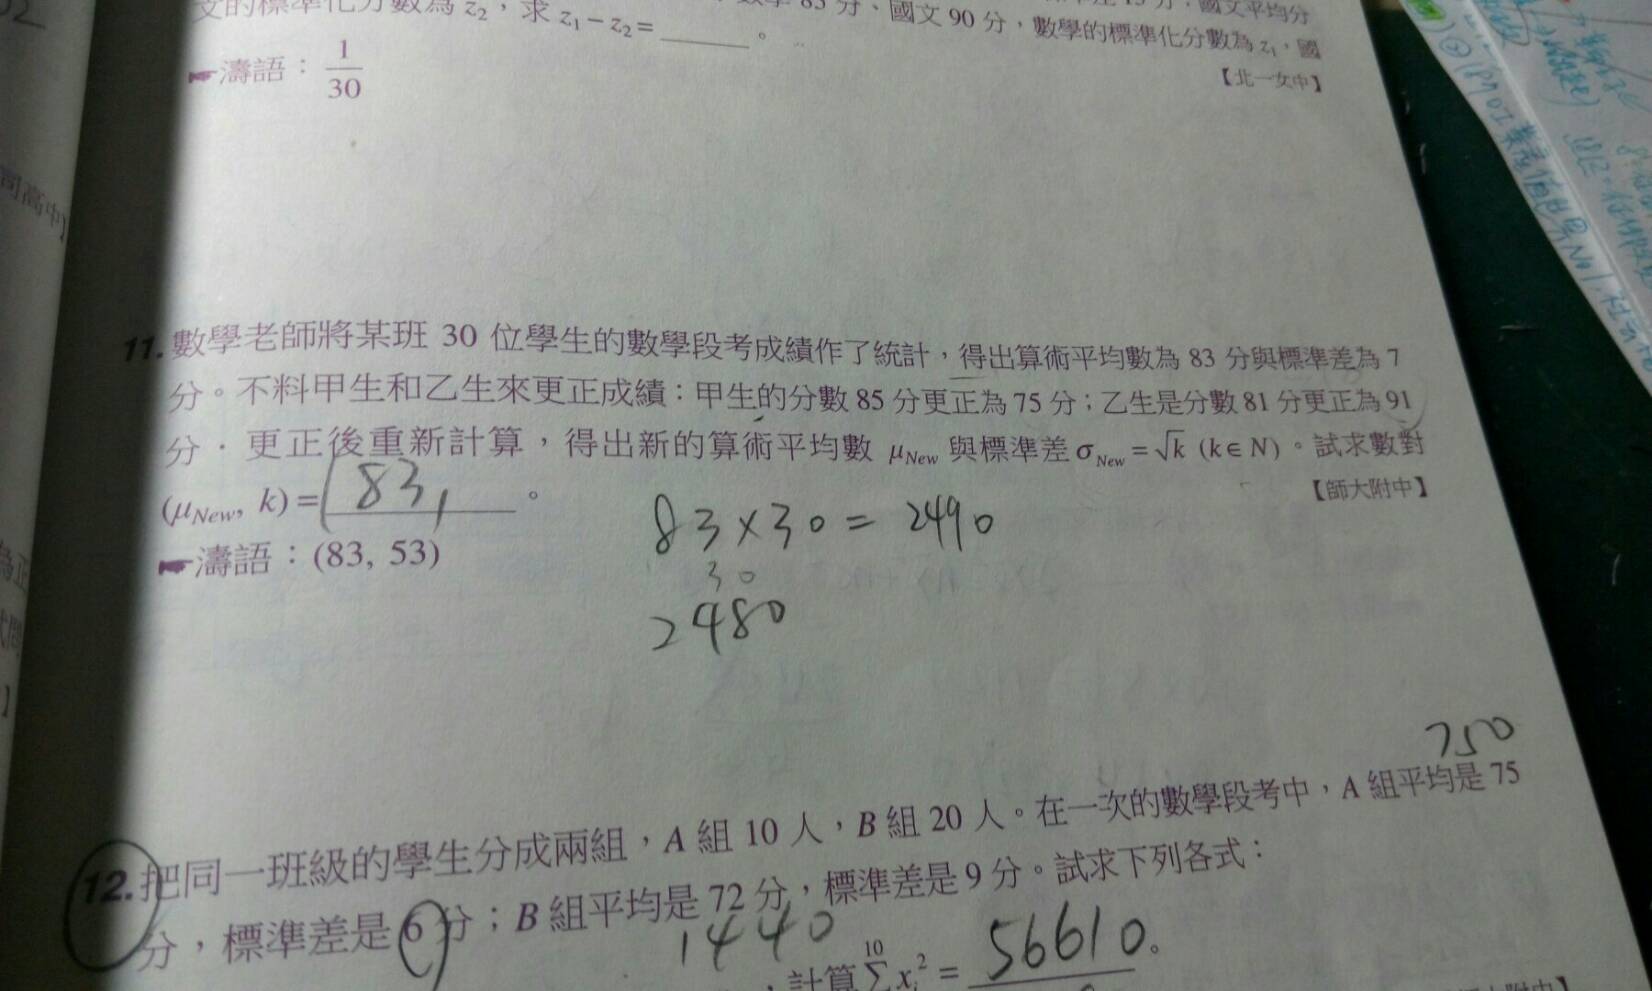 文的標準化分數為 z₂，求 z₁ − z₂ = ______。
83 分、國文 90 分，數學的標準化分數為 z₁，國
國文平均分
【北一女中】
☛濤語：1/30
11. 數學老師將某班 30 位學生的數學段考成績作了統計，得出算術平均數為 83 分與標準差為 7
分。不料甲生和乙生來更正成績：甲生的分數 85 分更正為 75 分；乙生是分數 81 分更正為 91
分．更正後重新計算，得出新的算術平均數 μNew 與標準差 σNew = √k (k∈N)。試求數對
(μNew, k) = (83, 。
【師大附中】
83×30 = 2490
30
2480
☛濤語：(83, 53)
750
12. 把同一班級的學生分成兩組，A 組 10 人，B 組 20 人。在一次的數學段考中，A 組平均是 75
分，標準差是 6 分；B 組平均是 72 分，標準差是 9 分。試求下列各式：
1440
計算 10 Σ xᵢ² = 56610。